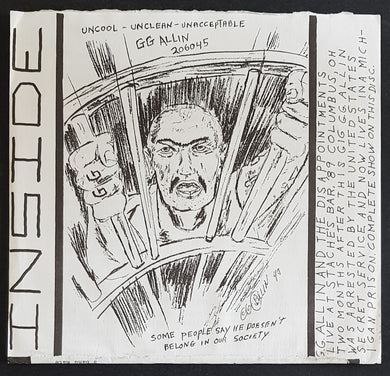 INSIDE
UNCOOL - UNCLEAN - UNACCEPTABLE
GG ALLIN
206045
GG ALLIN 89
SOME PEOPLE SAY HE DOESEN'T
BELONG IN OUR SOCIETY
GG ALLIN AND THE DISAPPOINTMENTS
LIVE AT STACHES BAR, '89 COLUMBUS, OH
TWO MONTHS AFTER THIS GIG GG ALLIN
WAS ARRESTED BY THE UNITED STATES
SECRET SERVICE AND NOW LIVES IN A MICH-
IGAN PRISON. COMPLETE SHOW ON THIS DISC.